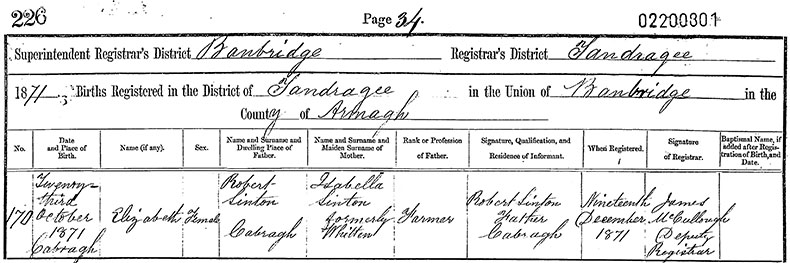 226 Page 34. 02200801
Superintendent Registrar's District Banbridge Registrar's District Tandragee
1871 Births Registered in the District of Tandragee in the Union of Banbridge in the
County of Armagh
No. Date and Place of Birth. Name (if any). Sex. Name and Surname and Dwelling Place of Father. Name and Surname and Maiden Surname of Mother. Rank or Profession of Father. Signature, Qualification, and Residence of Informant. When Registered. Signature of Registrar. Baptismal Name, if added after Registration of Birth, and Date.
170 Twenty-third October 1871 Cabragh Elizabeth Female Robert Sinton Cabragh Isabella Sinton formerly Whitten Farmer Robert Sinton Father Cabragh Nineteenth December 1871 James McCullough Deputy Registrar